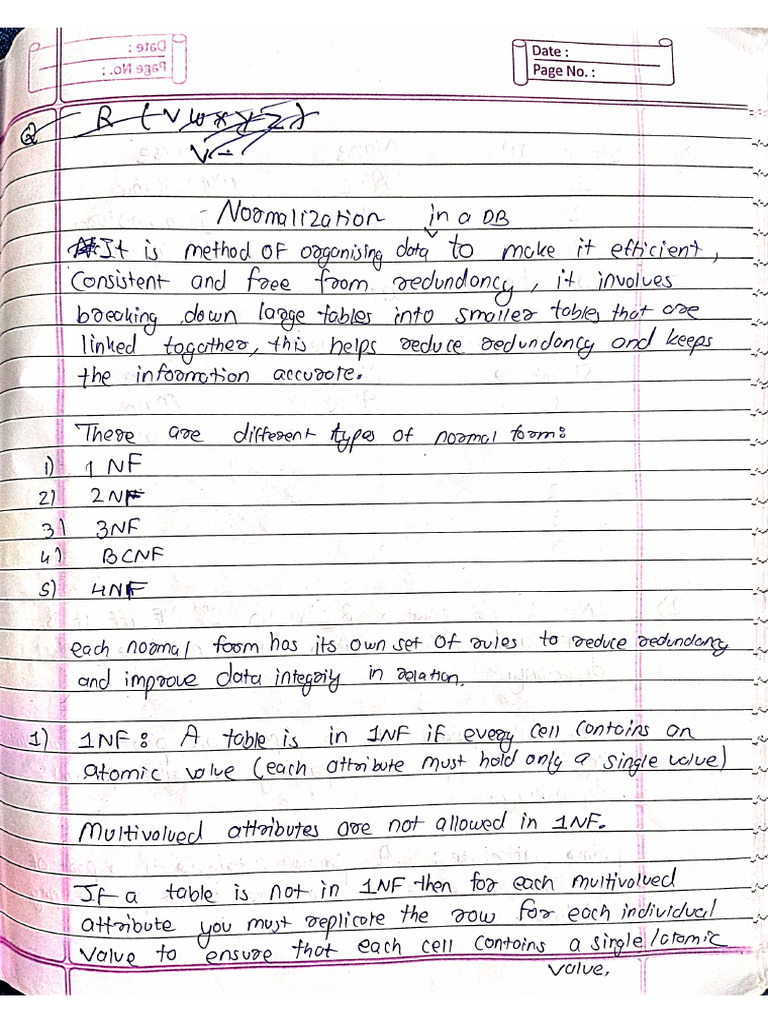 Date :
Page No. :
Date :
Page No. :
Q R (V W X Y Z)
V -
Normalization in a DB
It is method of organising data to make it efficient,
Consistent and free from redundancy, it involves
breaking down large tables into smaller tables that are
linked togather, this helps reduce redundancy and keeps
the information accurate.
There are different types of normal form:
1) 1 NF
2) 2NF
3) 3NF
4) BCNF
5) 4NF
each normal form has its own set of rules to reduce redundancy
and improve data integrity in relation.
1) 1NF : A table is in 1NF if every cell contains an
atomic value (each attribute must hold only a single value)
Multivalued attributes are not allowed in 1NF.
If a table is not in 1NF then for each multivalued
attribute you must replicate the row for each individual
value to ensure that each cell contains a single/atomic
value.